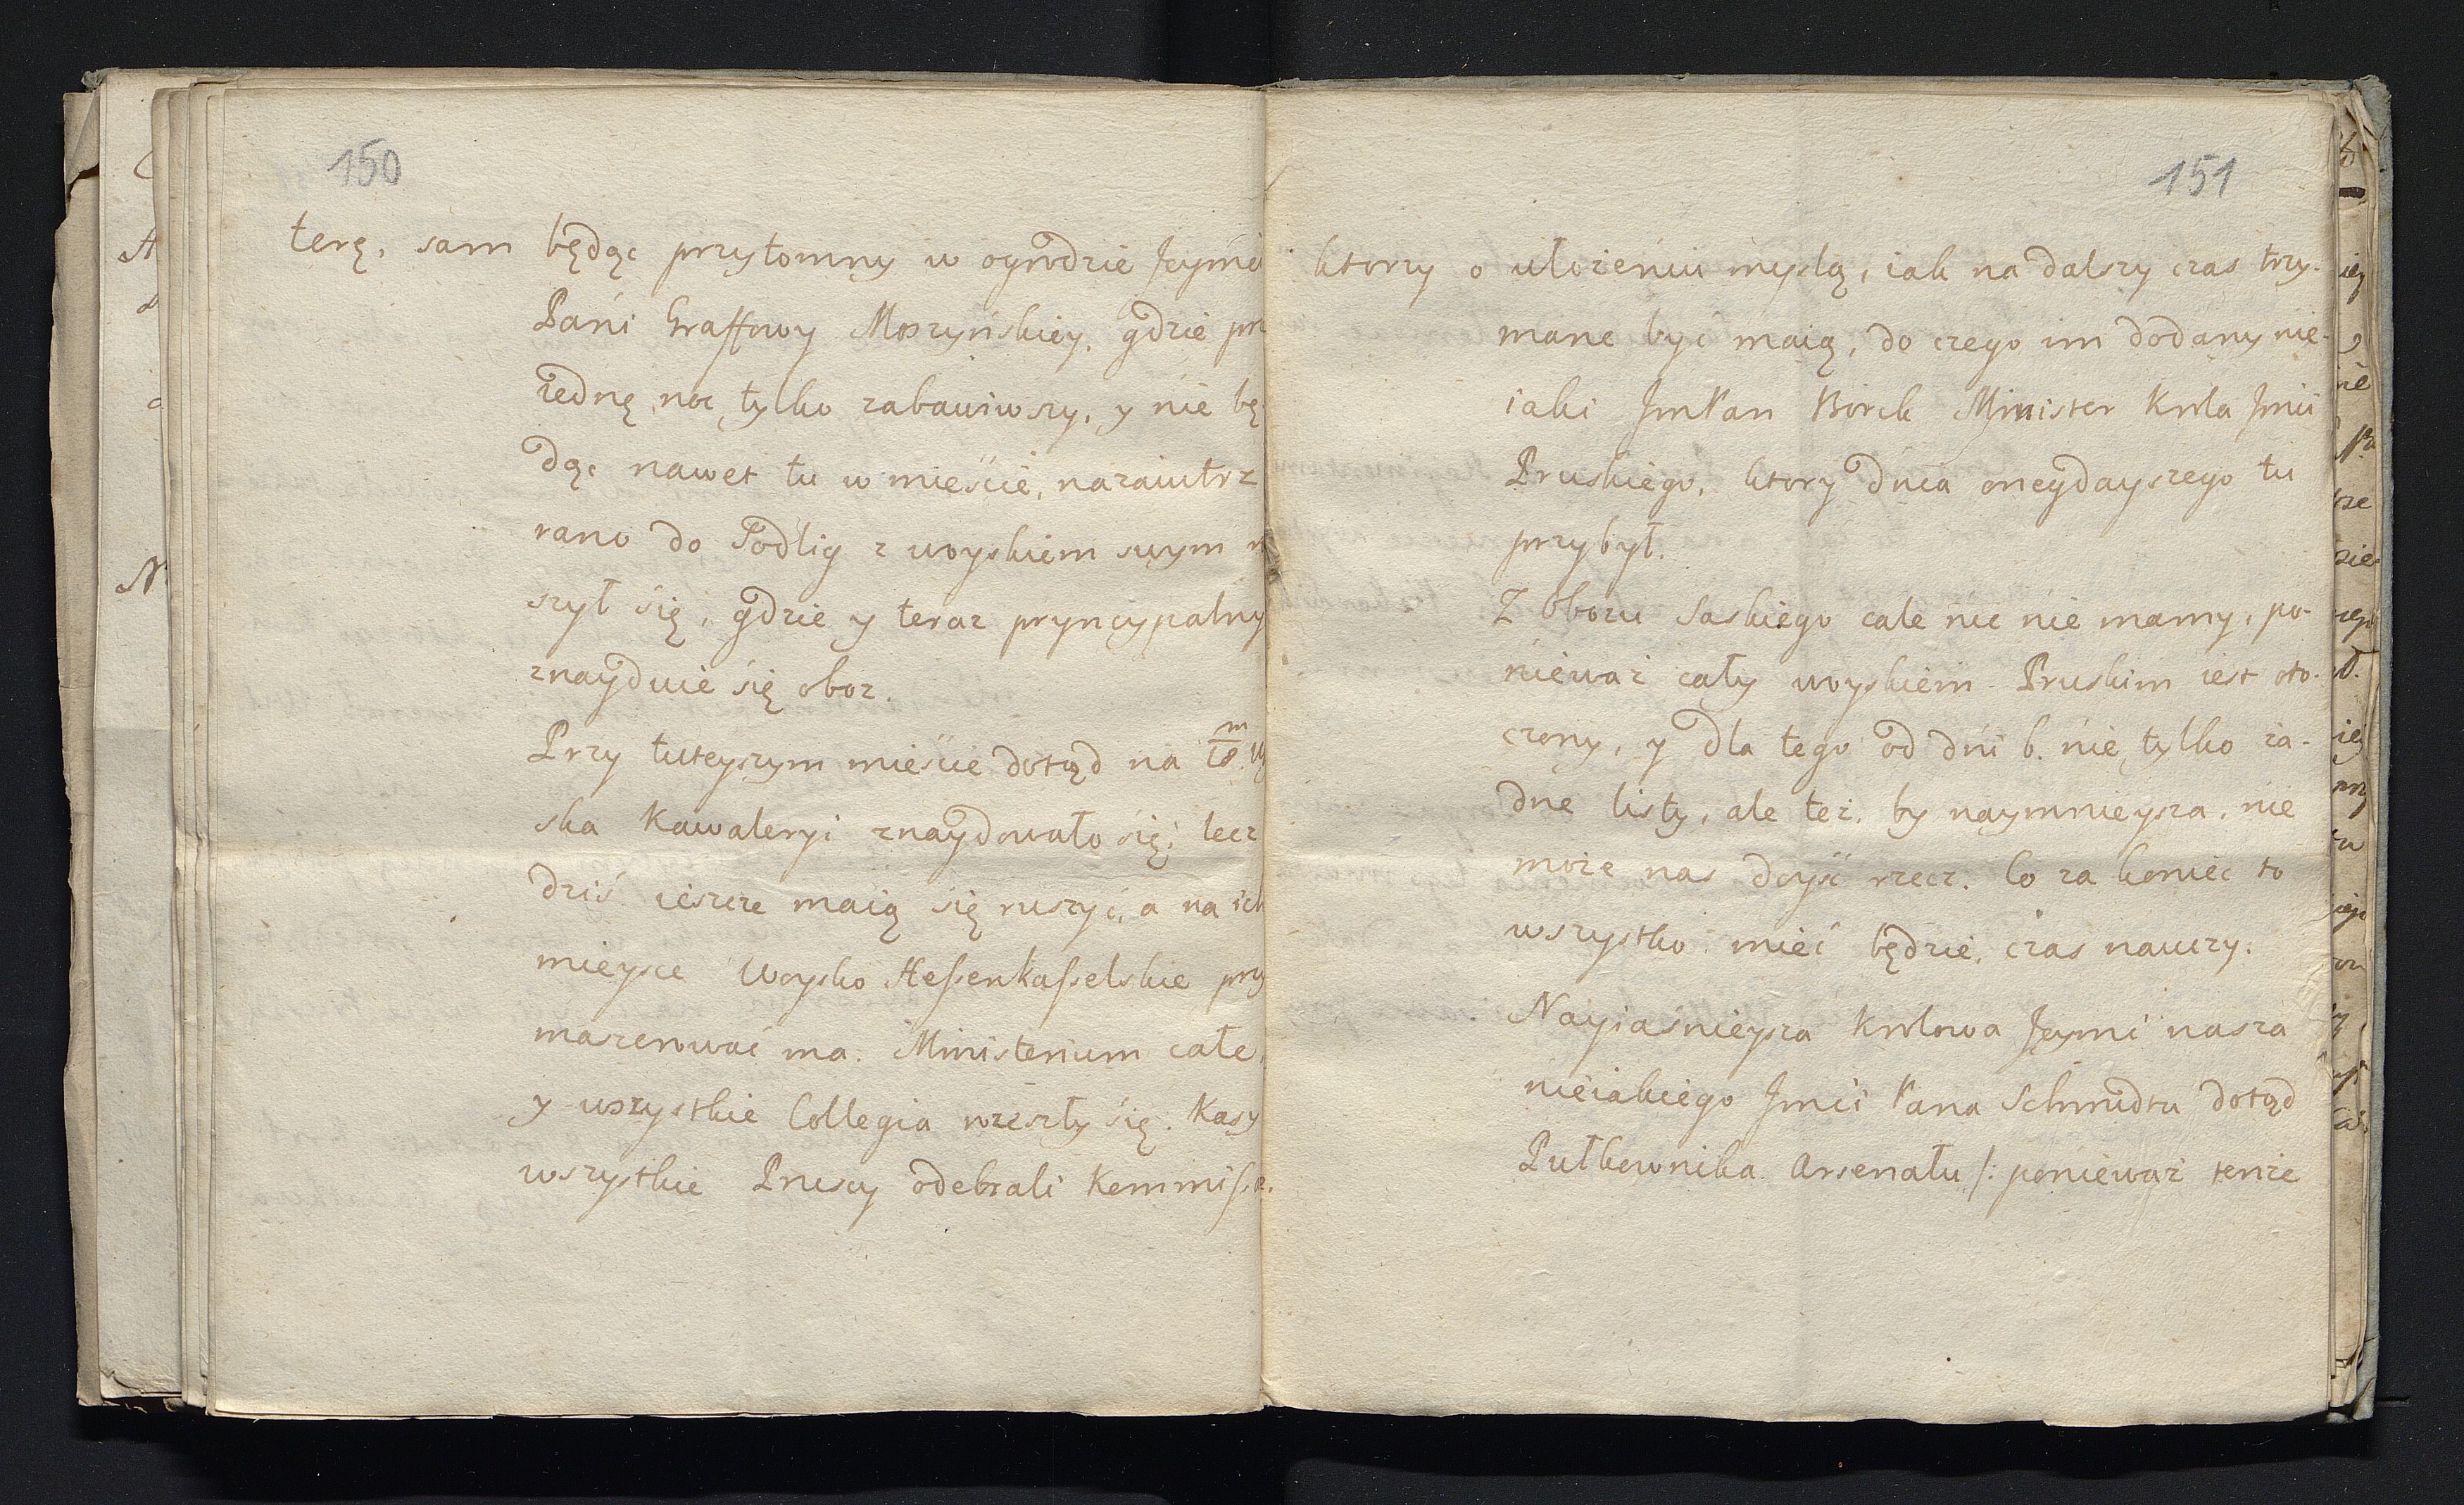 150
terę, sam będąc przytomny w ogrodzie Jeymci
Pani Graffowy Moszyńskiey, gdzie prz
iednę noc tylko zabawiwszy, y nie bę-
dąc nawet tu w mieście, nazaiutrz
rano do Sedlig z woyskiem swym r
szył się, gdzie y teraz pryncypalny
znayduie się oboz.
Przy tuteyszym mieście dotąd na 10.m
ska Kawaleryi znaydowało się; lecz
dziś ieszcze maią się ruszyć, a na ich
mieysce Woysko Heßenkaßelskie prz
maszerować ma. Ministerium całe
y wszystkie Collegia rozeszły się. Kasy
wszystkie Pruscy odebrali Kommißa.
151
ktorzy o ułożeniu myślą, iak na dalszy czas trzy-
mane być maią, do czego im dodany nie-
iaki JmPan Borck Minister Krola Jmci
Pruskiego, ktory dnia onegdayszego tu
przybył.
Z Obozu Saskiego cale nic nie mamy, po-
nieważ cały woyskiem Pruskim iest oto-
czony, y dla tego od dni 6. nie tylko ża-
dne listy, ale też by naymnieysza, nie
może nas doyść rzecz. Co za koniec to
wszystko mieć będzie, czas nauczy.
Nayiaśnieysza Krolowa Jeymć nasza
nieiakiego Jmci Pana Schmidta dotąd
Pułkownika Arsenału /: ponieważ tenże